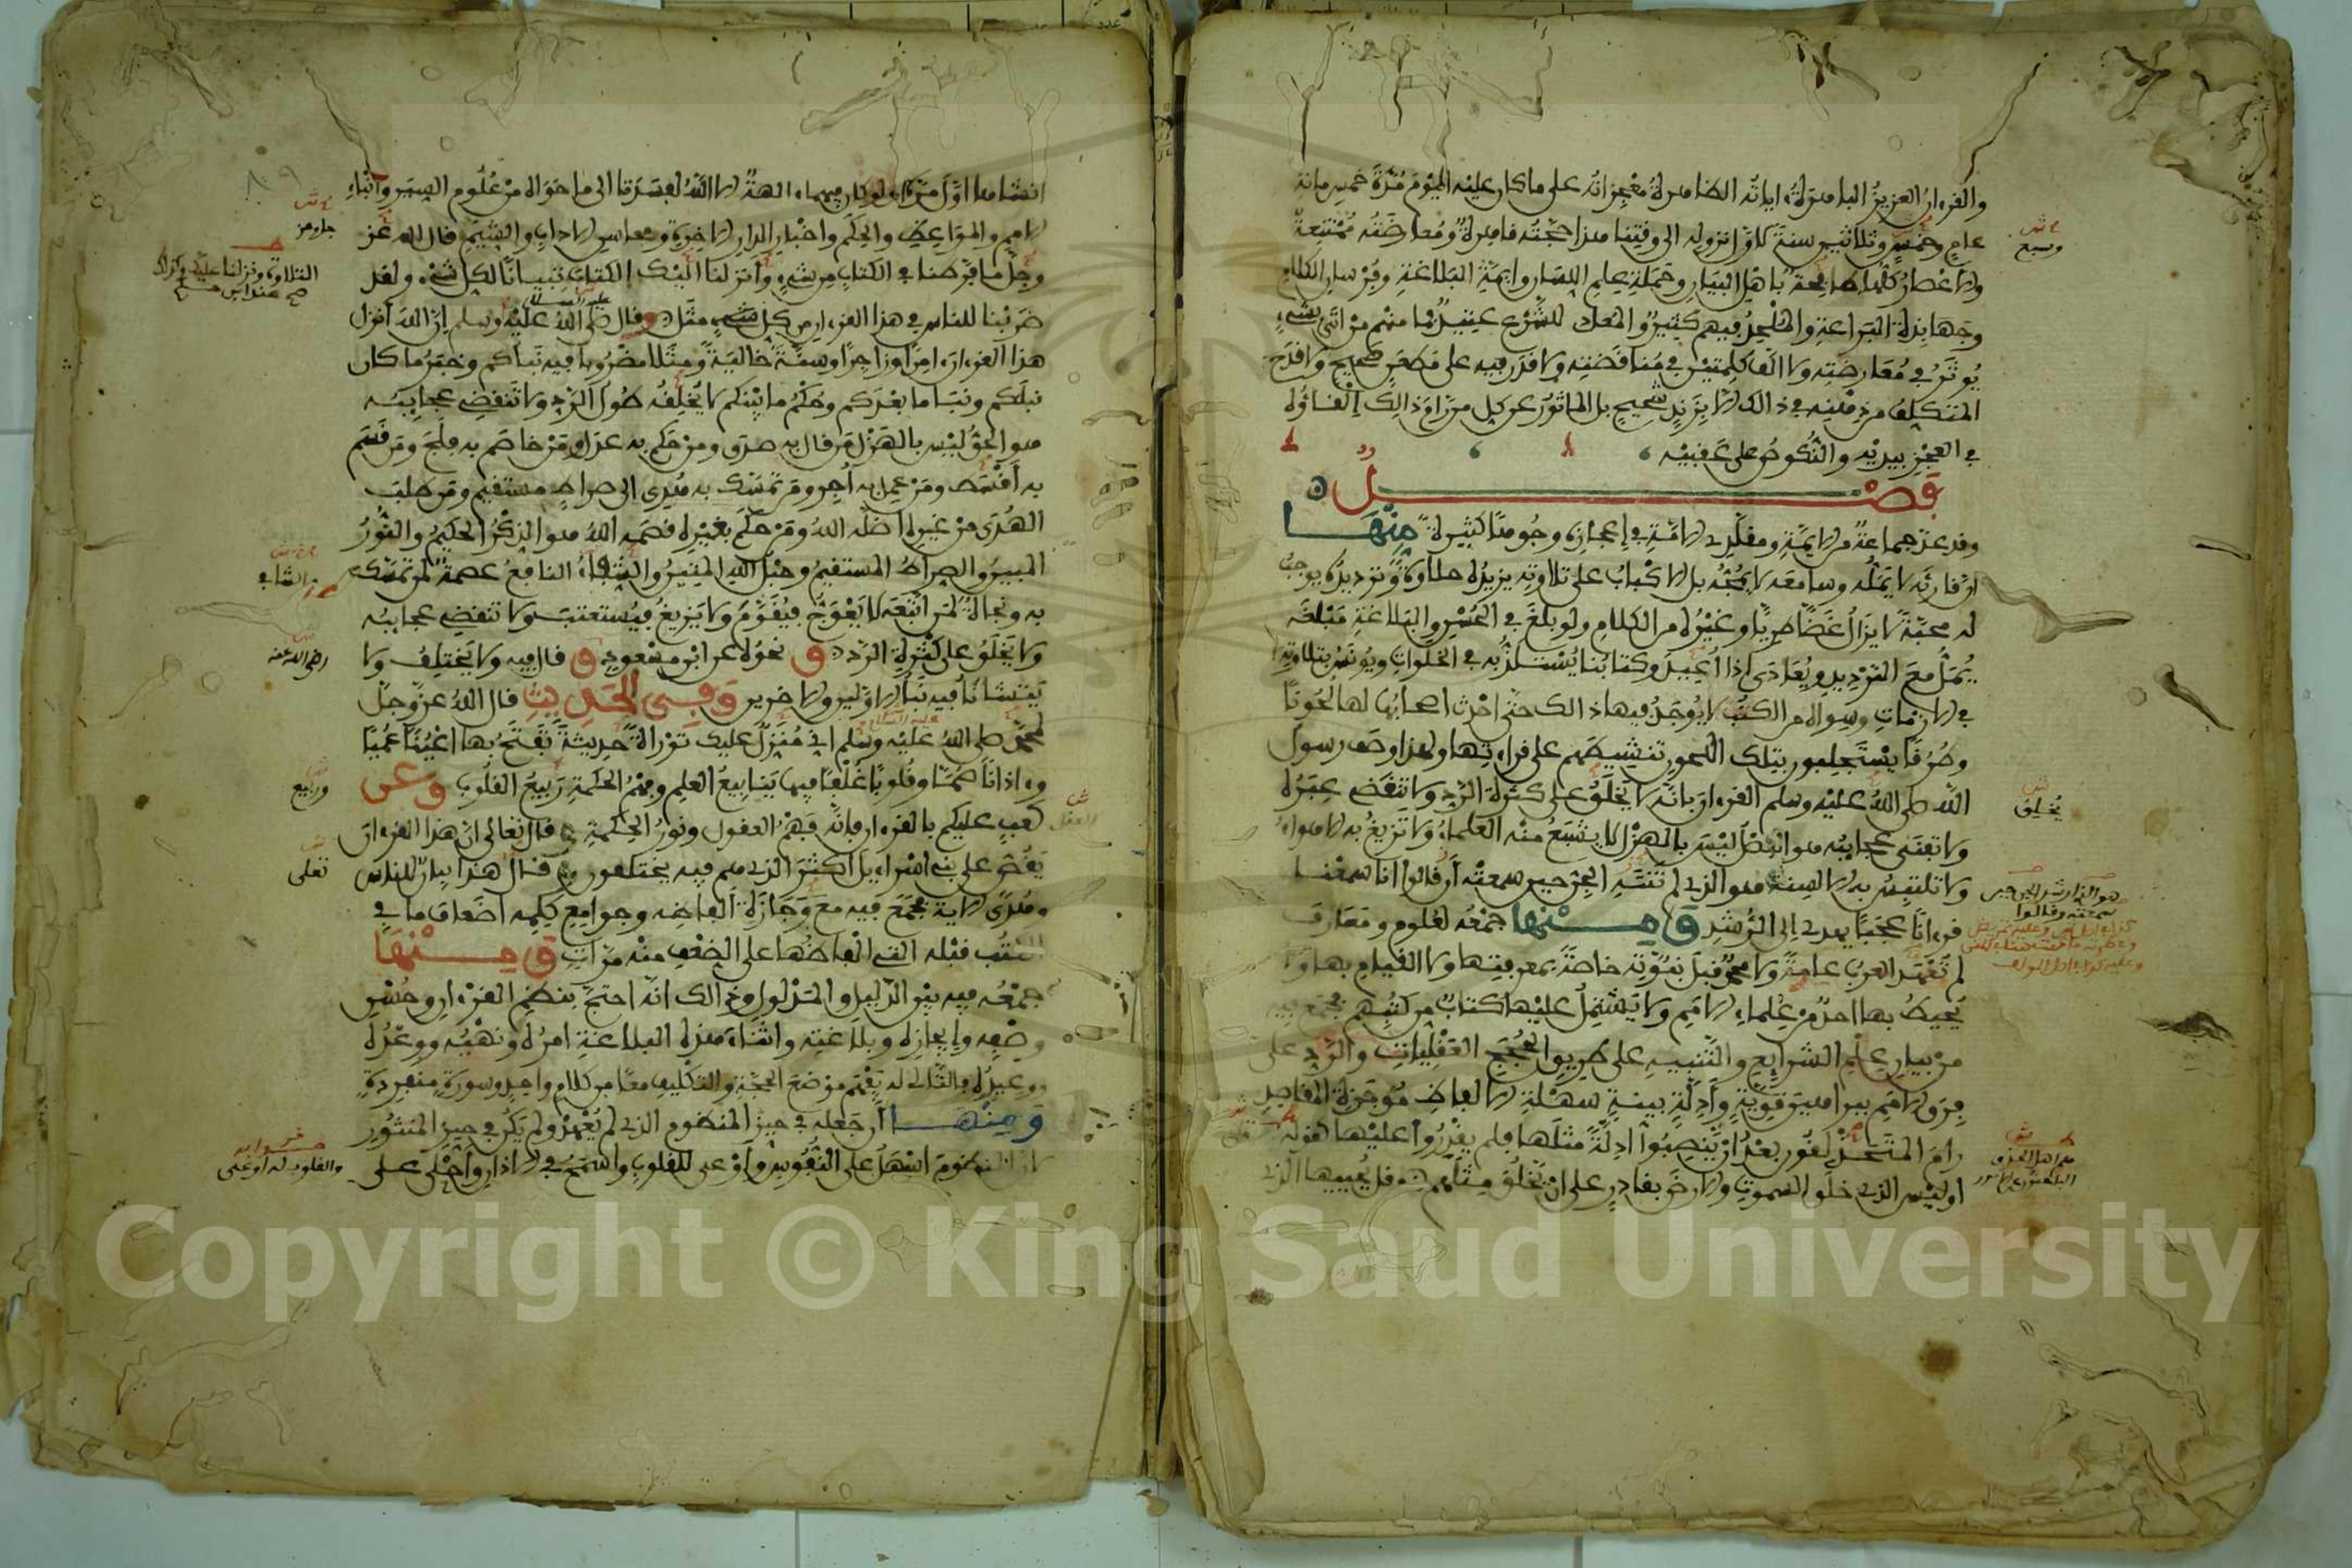 والقرءان العزيز الباهرة ءاياته الظاهرة معجزاته على ما كان عليه اليوم مدة خمس مائة
عام وخمس وثلاثين سنة لاول نزوله الى وقتنا هذا حجته قاهرة ومعارضته ممتنعة
والاعصار كلها طافحة باهل البيان وحملة علم اللسان وايمة البلاغة وفرسان الكلام
وجهابذة البراعة والملحد فيهم كثير والمعاد للشرع عتيد فما منهم من اتى بشيء
يوثر في معارضته ولا الف كلمتين في مناقضته ولا قدر فيه على مطعن صحيح ولا قدح
المتكلف من ذهنه في ذالك الا بزند شحيح بل الماثور عن كل من رام ذالك القاؤه
في العجز بيديه والنكوص على عقبيه
فصل
وقد عد جماعة من الايمة ومقلدي الامة في اعجازه وجوها كثيرة منها
ان قارئه لا يمله وسامعه لا يمجه بل الاكباب على تلاوته يزيده حلاوة وترديده يوجب
له محبة لا يزال غضا طريا وغيره من الكلام ولو بلغ في الحسن والبلاغة مبلغه
يمل مع الترديد ويعادى اذا اعيد وكتابنا يستلذ به في الخلوات ويونس بتلاوته
في الازمات وسواه من الكتب لا يوجد فيها ذالك حتى احدث اصحابها لها لحونا
وطرقا يستجلبون بتلك اللحون تنشيطهم على قراءتها ولهذا وصف رسول
الله صلى الله عليه وسلم القرءان بانه لا يخلق على كثرة الرد ولا تنقضي عبره
ولا تفنى عجايبه هو الفصل ليس بالهزل لا يشبع منه العلماء ولا تزيغ به الاهواء
ولا تلتبس به الالسنة هو الذي لم تنته الجن حين سمعته ان قالوا انا سمعنا
قرءانا عجبا يهدي الى الرشد ومنها جمعه لعلوم ومعارف
لم تعهد العرب عامة ولا محمد قبل نبوته خاصة بمعرفتها ولا القيام بها ولا
يحيط بها احد من علماء الامم ولا يشتمل عليها كتاب من كتبهم فجمع فيه
من بيان علم الشرايع والتنبيه على طريق الحجج العقليات والرد على
فرق الامم ببراهين قوية وادلة بينة سهلة الالفاظ موجزة المقاصد
رام المتحذلقون بعد ان ينصبوا ادلة مثلها فلم يقدروا عليها كقوله
اوليس الذي خلق السموت والارض بقادر على ان يخلق مثلهم وقل يحييها الذي
وسبع
يخلق
هو الذي لم تنته الجن حين
سمعته وقالوا
انشاها اول مرة ولو كان فيهما ءالهة الا الله لفسدتا الى ما حواه من علوم السير وانباء
الامم والمواعظ والحكم واخبار الدار الاخرة ومحاسن الاداب والشيم قال الله عز
وجل ما فرطنا في الكتاب من شيء وانزلنا اليك الكتاب تبيانا لكل شيء ولقد
ضربنا للناس في هذا القرءان من كل مثل وقال صلى الله عليه وسلم ان الله انزل
هذا القرءان ءامرا وزاجرا وسنة خالية ومثلا مضروبا فيه نباكم وخبر ما كان
قبلكم ونبا ما بعدكم وحكم ما بينكم لا يخلقه طول الرد ولا تنقضي عجايبه
هو الحق ليس بالهزل من قال به صدق ومن حكم به عدل ومن خاصم به فلج ومن قسم
به اقسط ومن عمل به اجر ومن تمسك به هدي الى صراط مستقيم ومن طلب
الهدى من غيره اضله الله ومن حكم بغيره قصمه الله هو الذكر الحكيم والنور
المبين والصراط المستقيم وحبل الله المتين والشفاء النافع عصمة لمن تمسك
به ونجاة لمن اتبعه لا يعوج فيقوم ولا يزيغ فيستعتب ولا تنقضي عجايبه
ولا يخلق على كثرة الرد و نحوه عن ابن مسعود و قال فيه ولا يختلف ولا
يتشانا فيه نبأ الاولين والاخرين وفي الحديث قال الله عز وجل
لمحمد صلى الله عليه وسلم اني منزل عليك توراة حديثة تفتح بها اعينا عميا
وءاذانا صما وقلوبا غلفا فيها ينابيع العلم وفهم الحكمة وربيع القلوب وعن
كعب عليكم بالقرءان فانه فهم العقول ونور الحكمة وقال تعالى ان هذا القرءان
يقص على بني اسراءيل اكثر الذي هم فيه يختلفون وقال هذا بيان للناس
وهدى الاية فجمع فيه مع وجازة الفاظه وجوامع كلمه اضعاف ما في
الكتب قبله التي الفاظها على الضعف منه مرات ومنها
جمعه فيه بين الدليل والمدلول وذالك انه احتج بنظم القرءان وحسن
وصفه وايجازه وبلاغته واثناء هذه البلاغة امره ونهيه ووعده
ووعيده فالتالي له يفهم موضع الحجة والتكليف معا من كلام واحد وسورة منفردة
ومنها ان جعله في حيز المنظوم الذي لم يعهد ولم يكن في حيز المنثور
لان المنظوم اسهل على النفوس واوعى للقلوب واسمع في الاذان واحلى على
جل وعز
الشافي
رضي الله عنه
وربيع
تعلى
Copyright © King Saud University